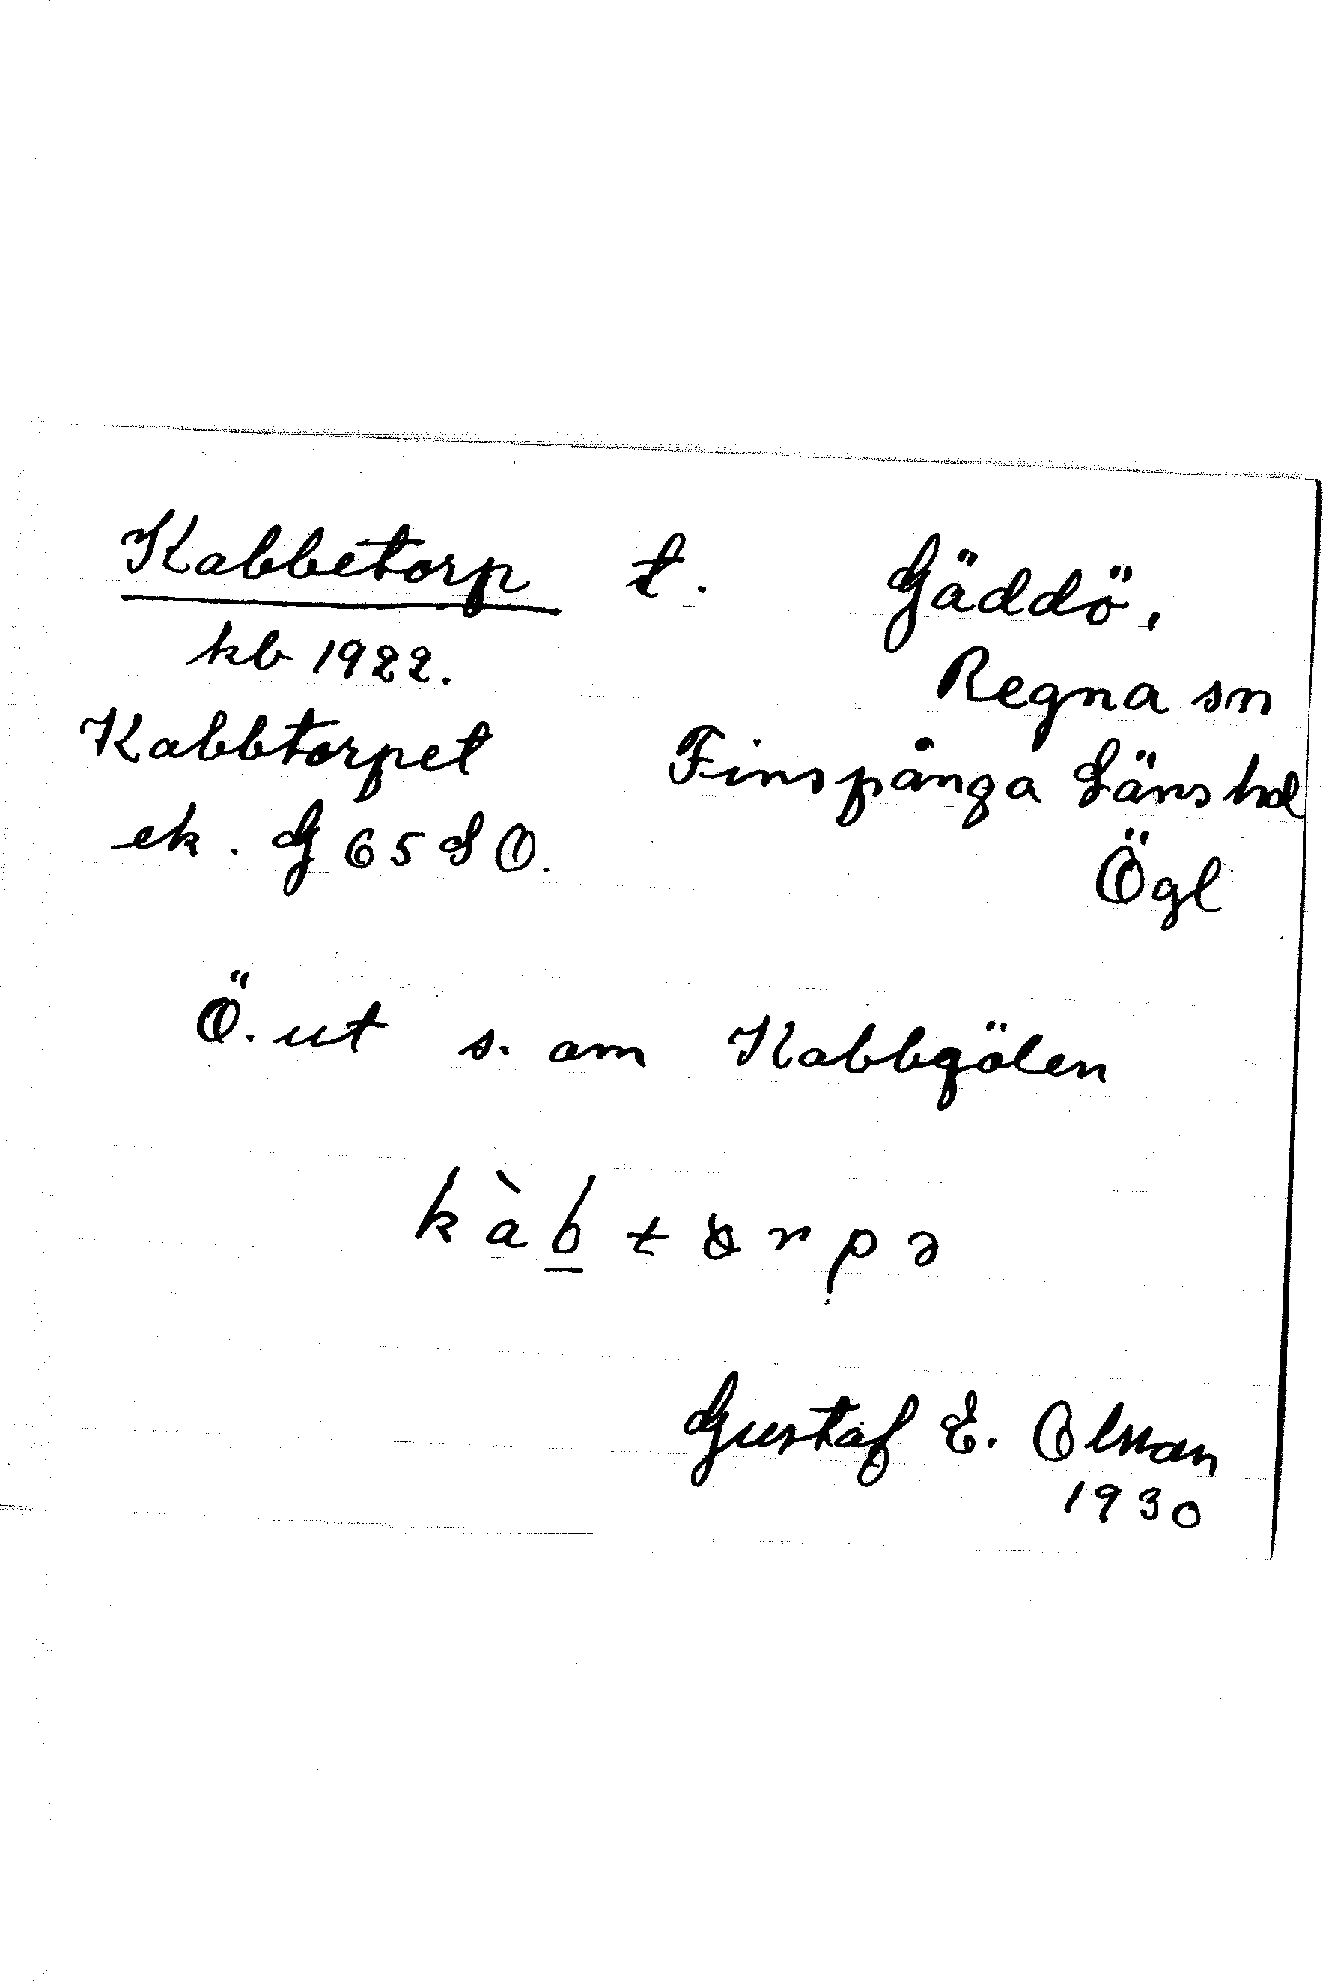 Kabbetorp t. Gäddö,
kb 1922. Regna sn
Kabbtorpet Finspånga Läns hd
ek. G 65 SO. Ögl
Ö. ut s. om Kabbgölen
kàb̲tɷrpə
Gustaf E. Olsson
1930